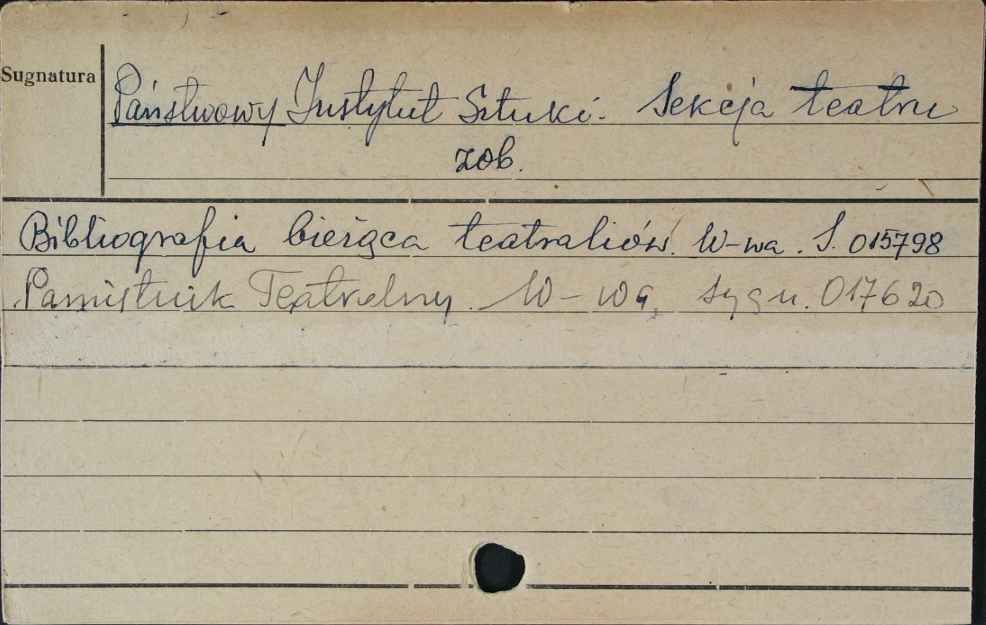 Sugnatura
Państwowy Instytut Sztuki. Sekcja teatru
zob.
Bibliografia bieżąca teatraliów. W-wa. S. 015798
Pamiętnik Teatralny. W-wa, sygn. 017620